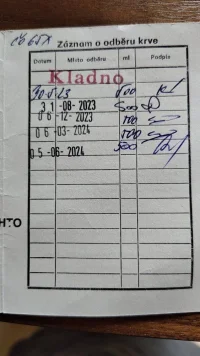 Záznam o odběru krve
Datum Místo odběru ml Podpis
Kladno
30.5.23 500
31-08-2023 500
06-12-2023 500
06-03-2024 500
05-06-2024 500
НТО